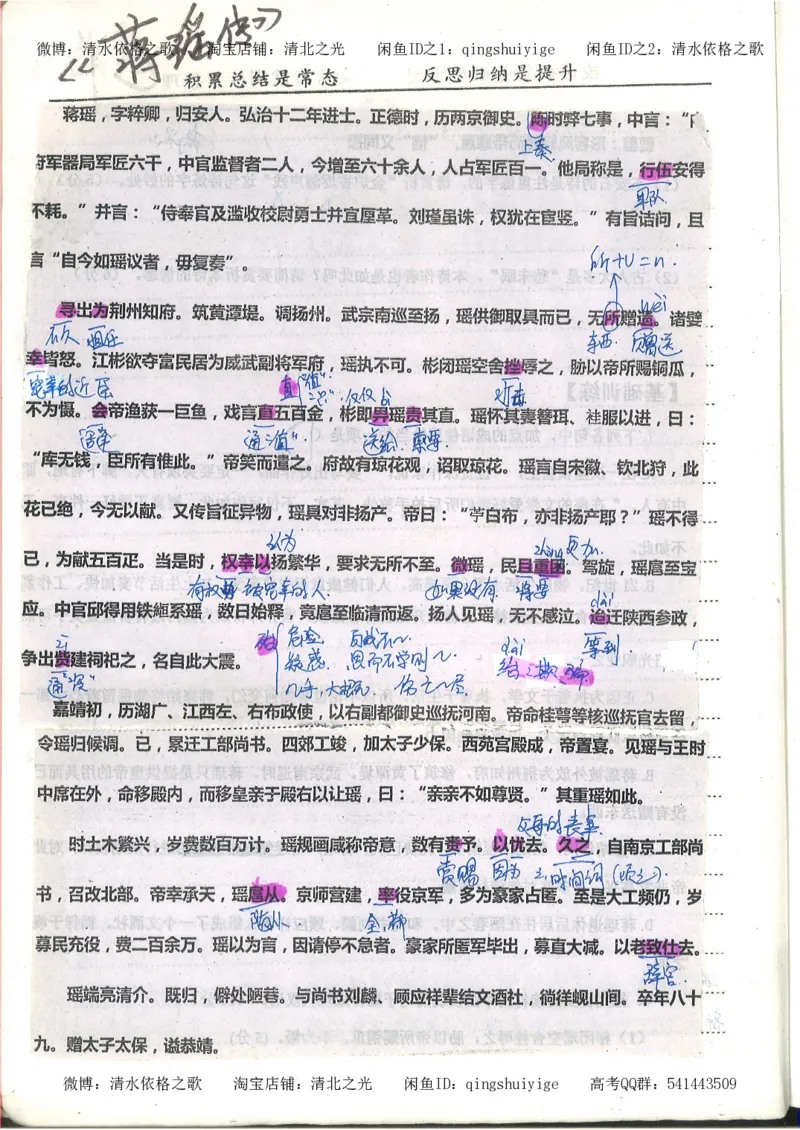 《蒋瑶传》
微博：清水依格之歌 淘宝店铺：清北之光 闲鱼ID之1：qingshuiyige 闲鱼ID之2：清水依格之歌
积累总结是常态 反思归纳是提升
蒋瑶，字粹卿，归安人。弘治十二年进士。正德时，历两京御史。陈时弊七事，中言：“
上奏
府军器局军匠六千，中官监督者二人，今增至六十余人，人占军匠百一。他局称是，行伍安得
军队
不耗。”并言：“侍奉官及滥收校尉勇士并宜厘革。刘瑾虽诛，权犹在宦竖。”有旨诘问，且
言“自今如瑶议者，毋复奏”。
所+v=n.
寻出为荆州知府。筑黄潭堤。调扬州。武宗南巡至扬，瑶供御取具而已，无所赠遗。诸嬖
不久 担任 东西 wei 赠送
幸皆怒。江彬欲夺富民居为威武副将军府，瑶执不可。彬闭瑶空舍挫辱之，胁以帝所赐铜瓜，
宠幸的近臣 直“值” 仅仅 打击
不为慑。会帝渔获一巨鱼，戏言直五百金，彬即畀瑶责其直。瑶怀其妻簪珥、袿服以进，曰：
适逢 通“值”. 送给 索要
“库无钱，臣所有惟此。”帝笑而遣之。府故有琼花观，诏取琼花。瑶言自宋徽、钦北狩，此
花已绝，今无以献。又传旨征异物，瑶具对非扬产。帝曰：“苧白布，亦非扬产耶？”瑶不得
认为
已，为献五百疋。当是时，权幸以扬繁华，要求无所不至。微瑶，民且重困。驾旋，瑶扈至宝
被宠幸的人 如果没有 将要 更加
应。中官邱得用铁絙系瑶，数日始释，竟扈至临清而返。扬人见瑶，无不感泣。迨迁陕西参政，
殆 危险 疑惑 思而不学则～ dài 等到
争出赀建祠祀之，名自此大震。
zī 通“资” 几乎，大概 伤亡～尽 dài 绐：欺骗
嘉靖初，历湖广、江西左、右布政使，以右副都御史巡抚河南。帝命桂萼等核巡抚官去留，
令瑶归候调。已，累迁工部尚书。四郊工竣，加太子少保。西苑宫殿成，帝置宴。见瑶与王时
中席在外，命移殿内，而移皇亲于殿右以让瑶，曰：“亲亲不如尊贤。”其重瑶如此。
父母的丧事
时土木繁兴，岁费数百万计。瑶规画咸称帝意，数有赉予。以忧去。久之，自南京工部尚
赏赐 因为 之：时间词（顺之）.
书，召改北部。帝幸承天，瑶扈从。京师营建，率役京军，多为豪家占匿。至是大工频仍，岁
陪从 全，都
募民充役，费二百余万。瑶以为言，因请停不急者。豪家所匿军毕出，募直大减。以老致仕去。
辞官
瑶端亮清介。既归，僻处陋巷。与尚书刘麟、顾应祥辈结文酒社，徜徉岘山间。卒年八十
九。赠太子太保，谥恭靖。
微博：清水依格之歌 淘宝店铺：清北之光 闲鱼ID：qingshuiyige 高考QQ群：541443509